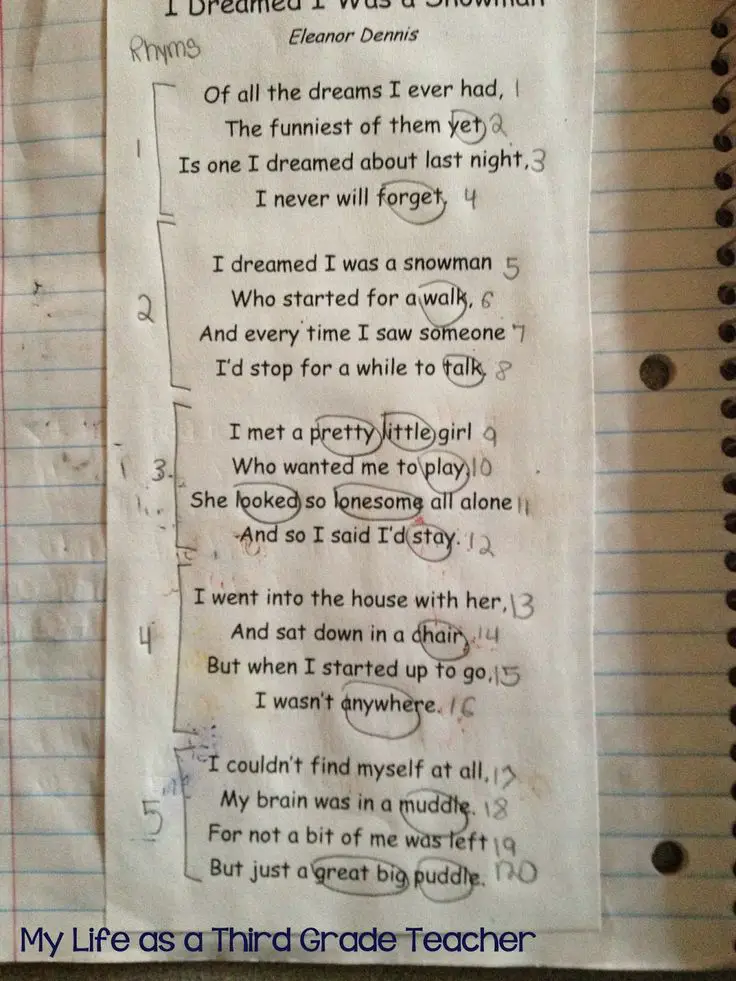 I Dreamed I Was a Snowman
Eleanor Dennis
Rhyms
1
Of all the dreams I ever had, 1
The funniest of them yet, 2
Is one I dreamed about last night, 3
I never will forget, 4
2
I dreamed I was a snowman 5
Who started for a walk, 6
And every time I saw someone 7
I'd stop for a while to talk. 8
3.
I met a pretty little girl 9
Who wanted me to play, 10
She looked so lonesome all alone 11
And so I said I'd stay. 12
4
I went into the house with her, 13
And sat down in a chair, 14
But when I started up to go, 15
I wasn't anywhere. 16
5
I couldn't find myself at all, 17
My brain was in a muddle. 18
For not a bit of me was left 19
But just a great big puddle. 20
My Life as a Third Grade Teacher